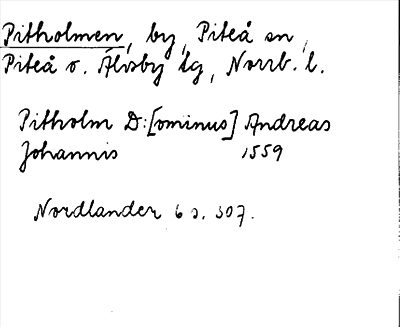 Pitholmen, by, Piteå sn,
Piteå o. Älvsby tg, Norrb. l.
Pitholm D:[ominus] Andreas
Johannis 1559
Nordlander 6 s. 307.